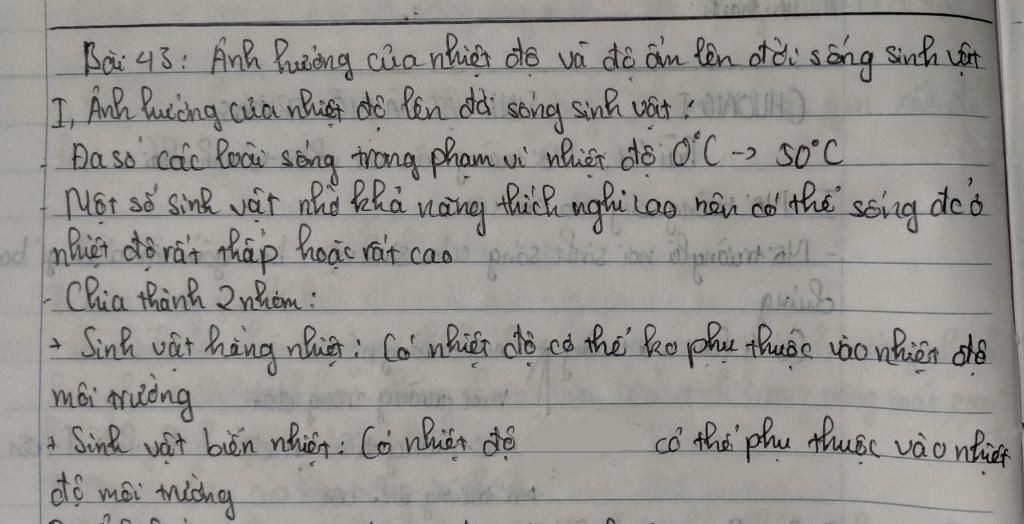 Bài 43: Ảnh hưởng của nhiệt độ và độ ẩm lên đời sống sinh vật
I, Ảnh hưởng của nhiệt độ lên đời sống sinh vật:
- Đa số các loài sống trong phạm vi nhiệt độ 0°C -> 50°C
- Một số sinh vật nhờ khả năng thích nghi cao nên có thể sống đc ở
nhiệt độ rất thấp hoặc rất cao
- Chia thành 2 nhóm:
+ Sinh vật hằng nhiệt: Có nhiệt độ cơ thể ko phụ thuộc vào nhiệt độ
môi trường
+ Sinh vật biến nhiệt: Có nhiệt độ cơ thể phụ thuộc vào nhiệt
độ môi trường